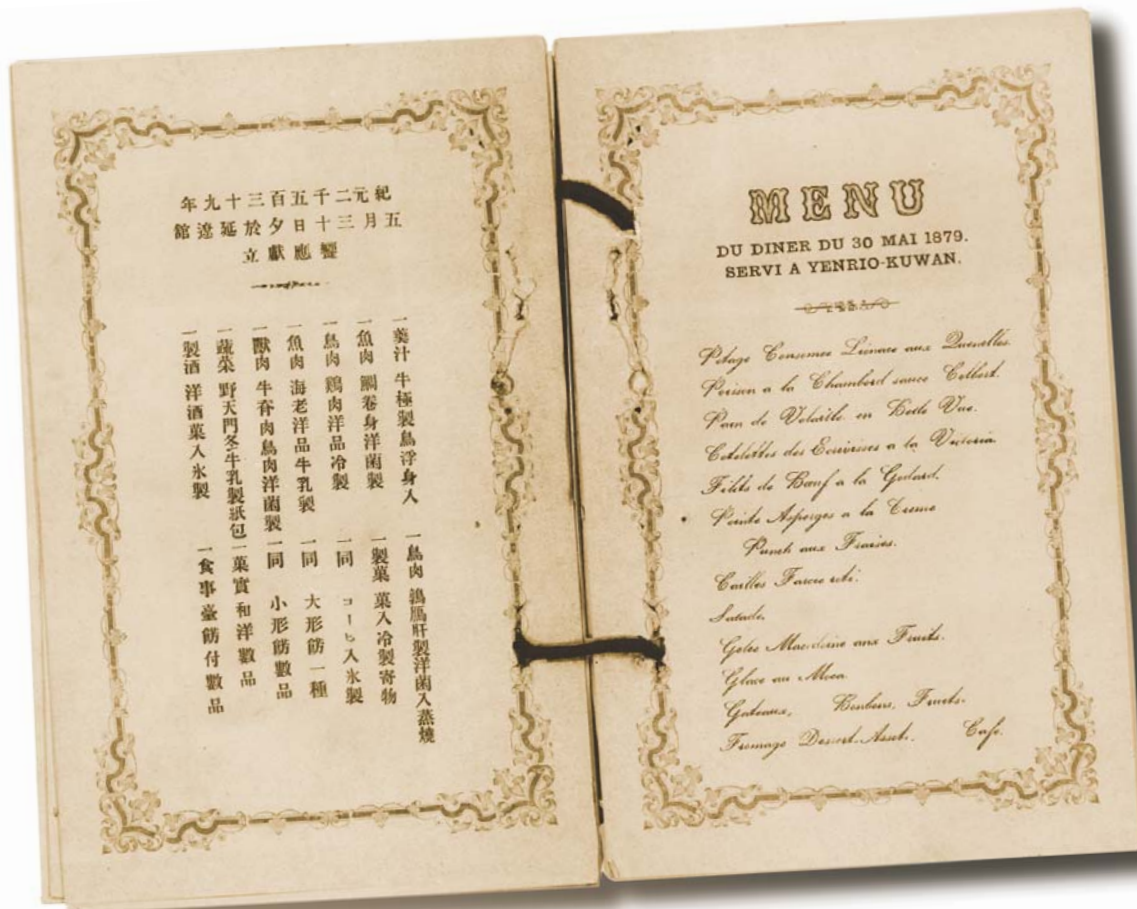 紀元二千五百三十九年
五月三十日夕於延遼館
饗應獻立
一羹汁 牛極製鳥浮身入
一魚肉 鯛卷身洋菌製
一鳥肉 鶏肉洋品冷製
一魚肉 海老洋品牛乳製
一獸肉 牛脊肉鳥肉洋菌製
一蔬菜 野天門冬牛乳製紙包
一製酒 洋酒菓入氷製
一鳥肉 鶉鴈肝製洋菌入蒸燒
一製菓 菓入冷製寄物
一同 コーヒ入氷製
一同 大形餝一種
一同 小形餝數品
一菓實 和洋數品
一食事臺餝付數品
MENU
DU DINER DU 30 MAI 1879.
SERVI A YENRIO-KUWAN.
Potage Consomee Lienace aux Quenelles.
Poisson a la Chambord sauce Colbert.
Pain de Volaille en Belle Vue.
Cotelettes des Ecrivisses a la Victoria.
Filets de Bœuf a la Godard.
Pointe Asperges a la Creme
Punch aux Fraises.
Cailles Farcie roti.
Salade.
Gelee Macedoine aux Fruits.
Glace au Moca.
Gateaux, Bonbons, Fruits.
Fromage Dessert-Assti. Cafe.